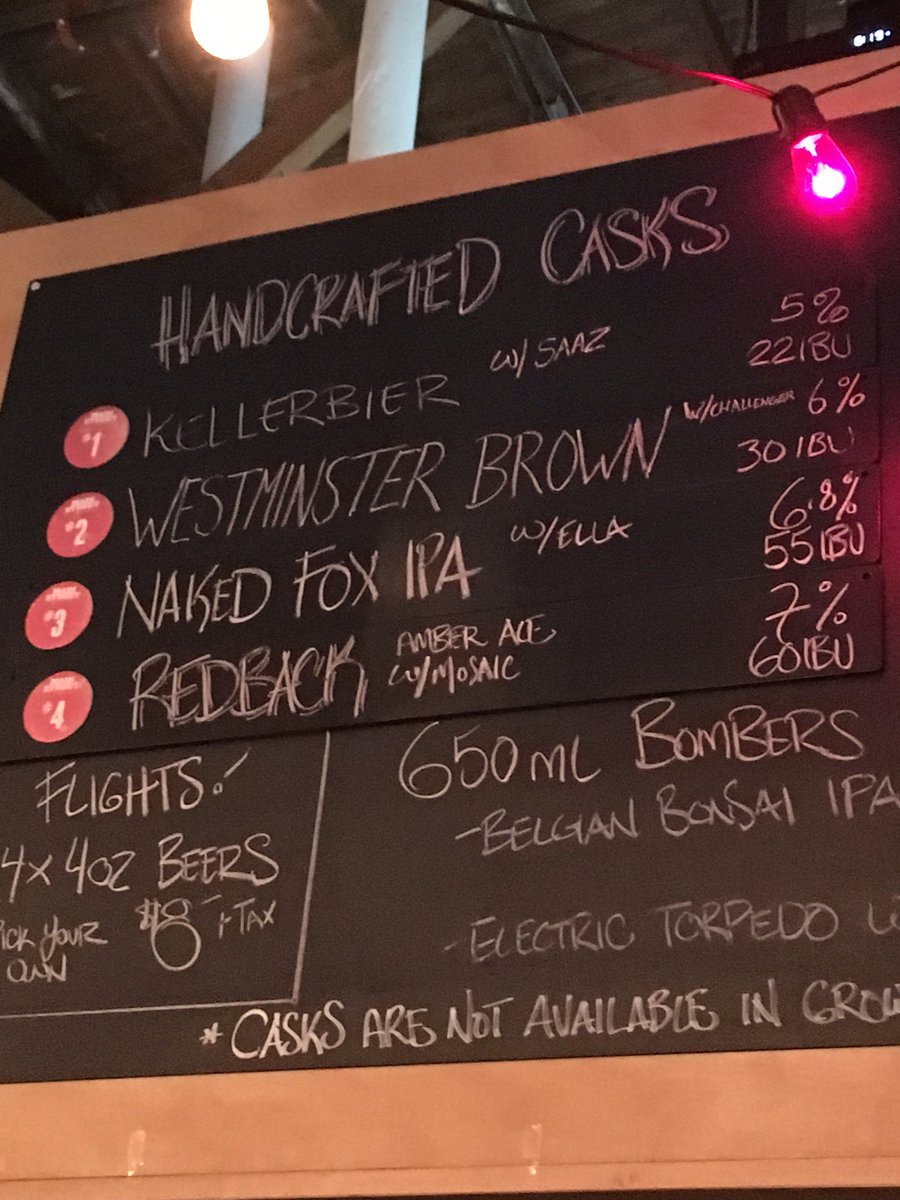 8:19
HANDCRAFTED CASKS
#1 KELLERBIER W/ SAAZ 5% 22 IBU
#2 WESTMINSTER BROWN W/CHALLENGER 6% 30 IBU
#3 NAKED FOX IPA W/ELLA 6.8% 55 IBU
#4 REDBACK AMBER ALE W/MOSAIC 7% 60 IBU
FLIGHTS!
4X 4OZ BEERS
PICK YOUR OWN $8 + TAX
650ML BOMBERS
-BELGIAN BONSAI IPA
-ELECTRIC TORPEDO
* CASKS ARE NOT AVAILABLE IN GROW